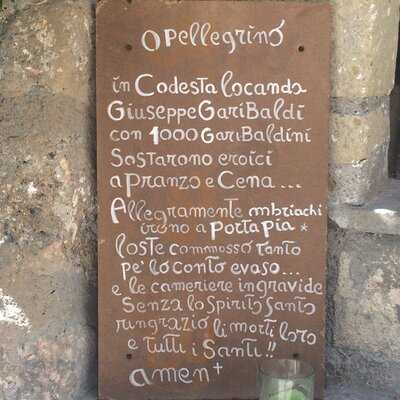 O Pellegrino
in Codesta locanda
Giuseppe Garibaldi
con 1000 Garibaldini
Sostarono eroici
a pranzo e Cena...
Allegramente mbriachi
irono a Porta Pia *
l'oste commosso tanto
pe' lo conto evaso...
e le cameriere ingravide
Senza lo Spirito Santo
ringraziò li morti loro
e tutti i Santi!!
amen+